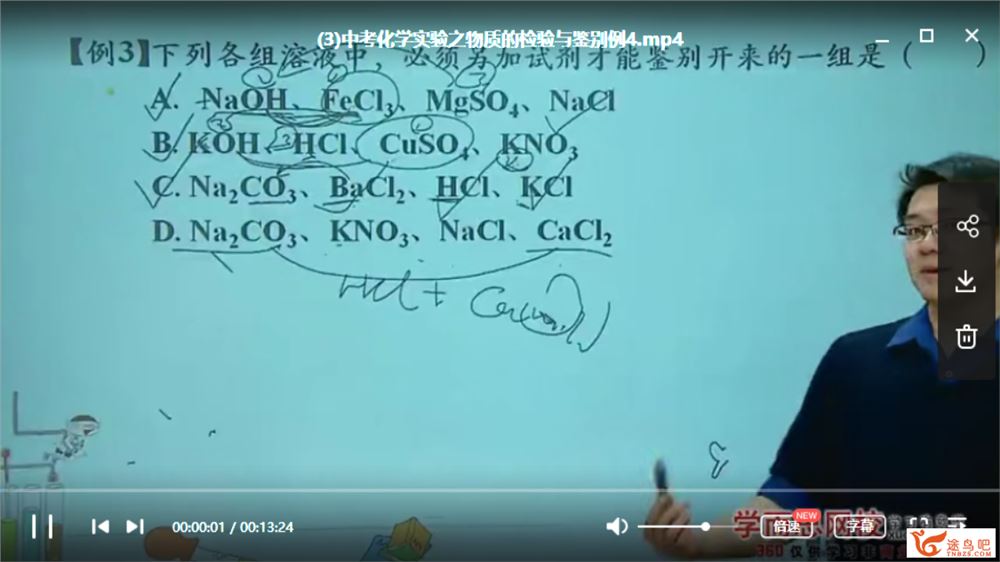 (3)中考化学实验之物质的检验与鉴别例4.mp4
【例3】下列各组溶液中，必须另加试剂才能鉴别开来的一组是（ ）
A. NaOH、FeCl₃、MgSO₄、NaCl
B. KOH、HCl、CuSO₄、KNO₃
C. Na₂CO₃、BaCl₂、HCl、KCl
D. Na₂CO₃、KNO₃、NaCl、CaCl₂
HCl +
00:00:01 / 00:13:24
倍速
NEW
字幕
学而思网校
360
途鸟吧
TNBZS.COM